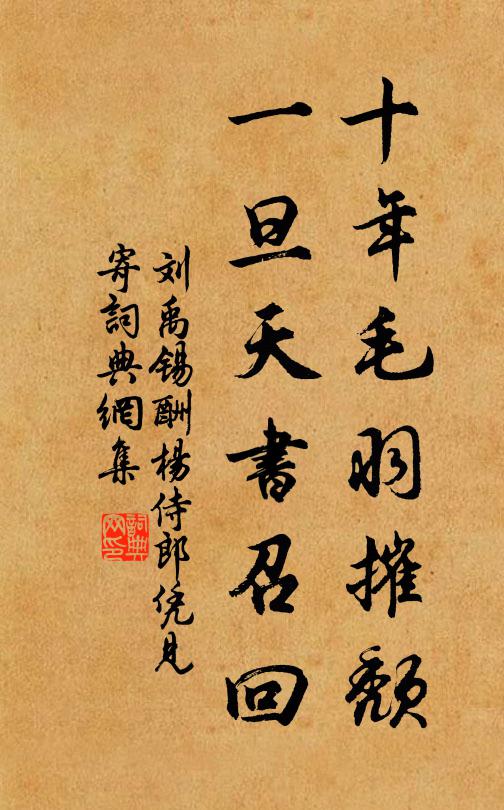 十年毛羽摧颓
一旦天书召回
刘禹锡酬杨侍郎凭见
寄词典网集
詞典网印